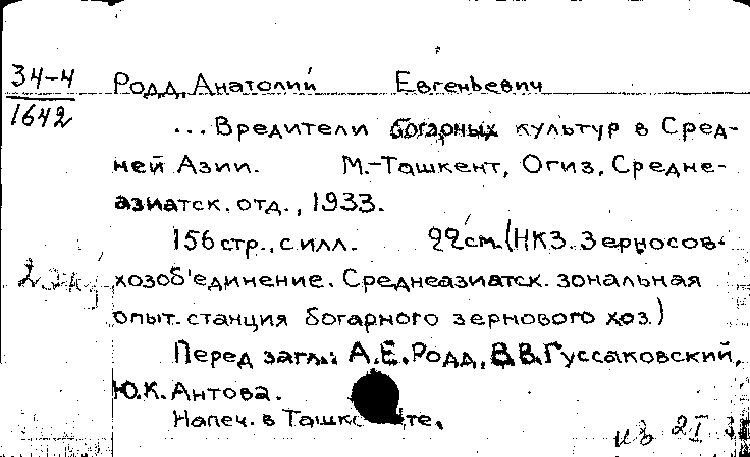 34-4
1642
Родд, Анатолий Евгеньевич
...Вредители богарных культур в Сред-
ней Азии. М.-Ташкент, Огиз, Средне-
азиатск. отд., 1933.
156 стр., с илл. 22 см. (НКЗ. Зерносов-
хозоб'единение. Среднеазиатск. зональная
опыт. станция богарного зернового хоз.)
Перед загл.: А.Е.Родд, В.В.Гуссаковский,
Ю.К.Антова.
2 экз
Напеч. в Ташк те.